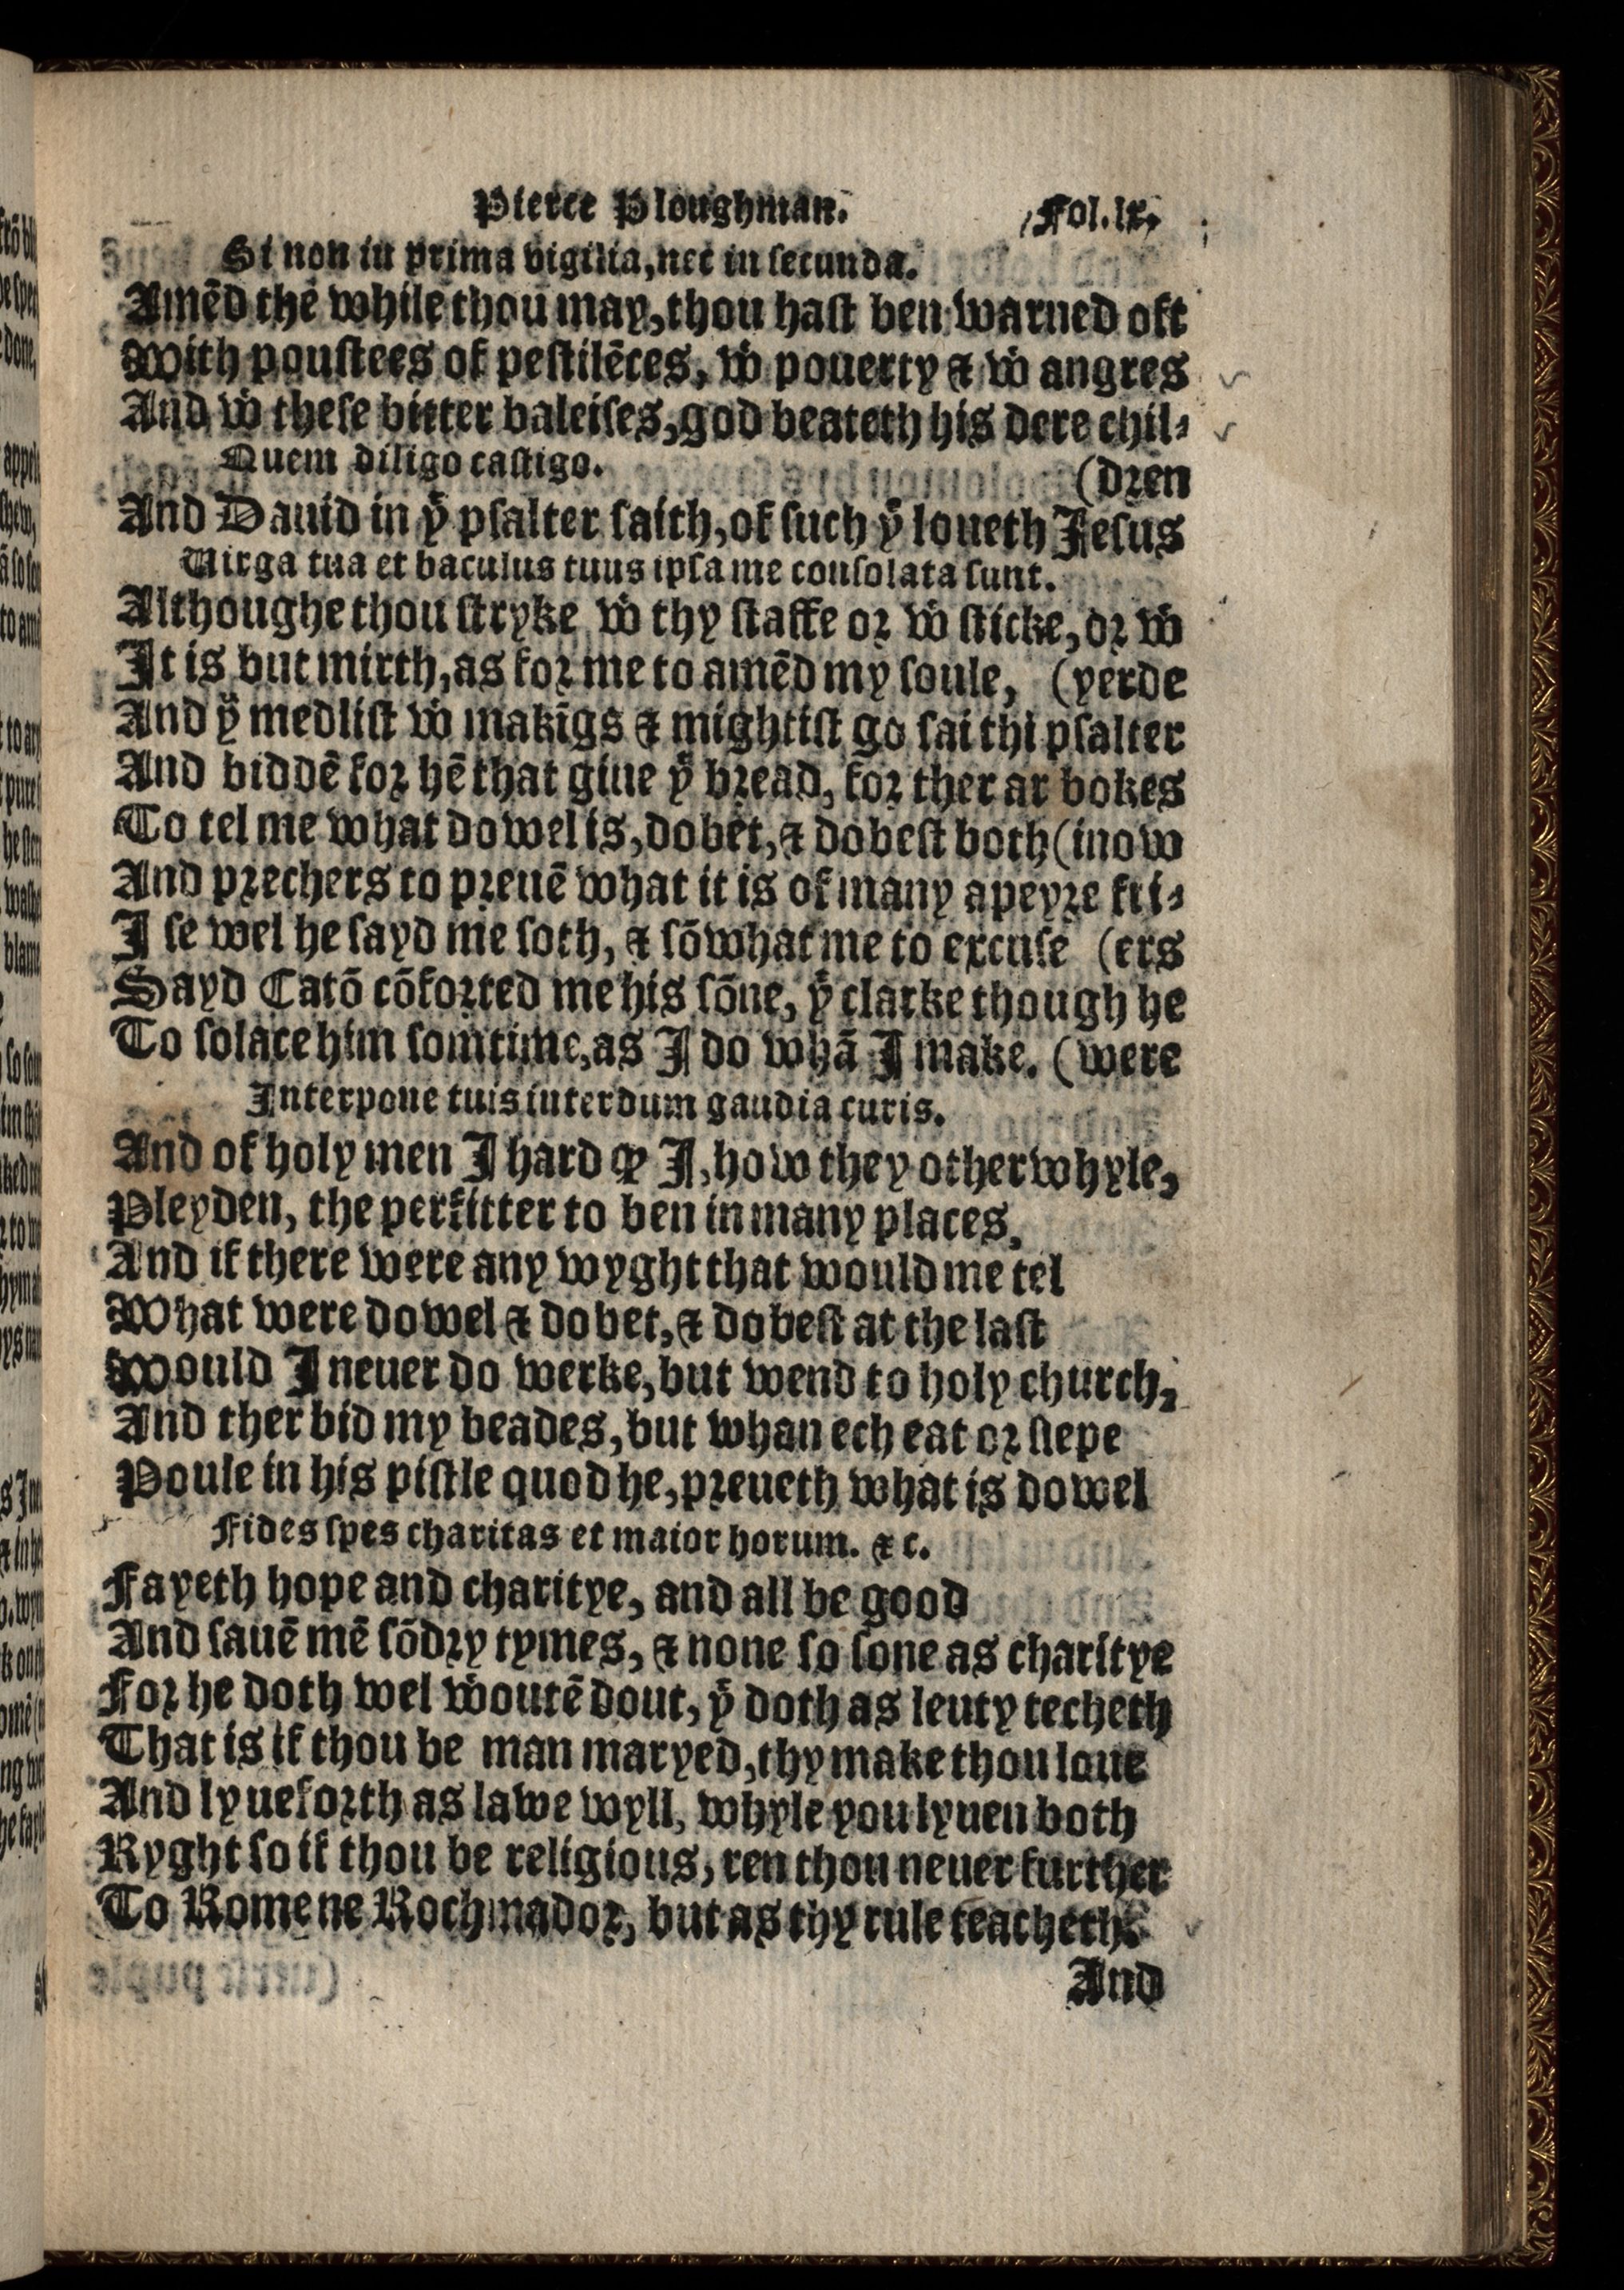 Pierce Ploughman. Fol.lx.
Si non in prima vigilia, nec in secunda.
Amēd the while thou may, thou hast ben warned oft
With poustees of pestilēces, wͭ pouerty & wͭ angres
And wͭ these bitter baleises, god beateth his dere chil⸗
Quem diligo castigo. (dren
And Dauid in yͤ psalter saith, of such yͭ loueth Jesus
Virga tua et baculus tuus ipsa me consolata sunt.
Althoughe thou stryke wͭ thy staffe or wͭ sticke, or wͭ
It is but mirth, as for me to amēd my soule, (yerde
And yͧ medlist wͭ makīgs & mightist go sai thi psalter
And biddē for hē that giue yͤ bread, for ther ar bokes
To tel me what dowel is, dobet, & dobest both (inow
And prechers to preuē what it is of many a peyre fri⸗
I se wel he sayd me soth, & sōwhat me to excuse (ers
Sayd Catō cōforted me his sōne, yͭ clarke though he
To solace him somtime, as I do whā I make. (were
Interpone tuis interdum gaudia curis.
And of holy men I hard qͦ I, how they otherwhyle,
Pleyden, the perfitter to ben in many places,
And if there were any wyght that would me tel
What were dowel & dobet, & dobest at the last
Would I neuer do werke, but wend to holy church,
And ther bid my beades, but whan ech eat or slepe
Poule in his pistle quod he, preueth what is dowel
Fides spes charitas et maior horum. &c.
Fayeth hope and charitye, and all be good
And sauē mē sōdry tymes, & none so sone as charitye
For he doth wel wͭoutē dout, yͭ doth as leuty techeth
That is if thou be man maryed, thy make thou loue
And lyue forth as lawe wyll, whyle you lyuen both
Ryght so if thou be religious, ren thou neuer further
To Rome ne Rochmador, but as thy rule teacheth.
And